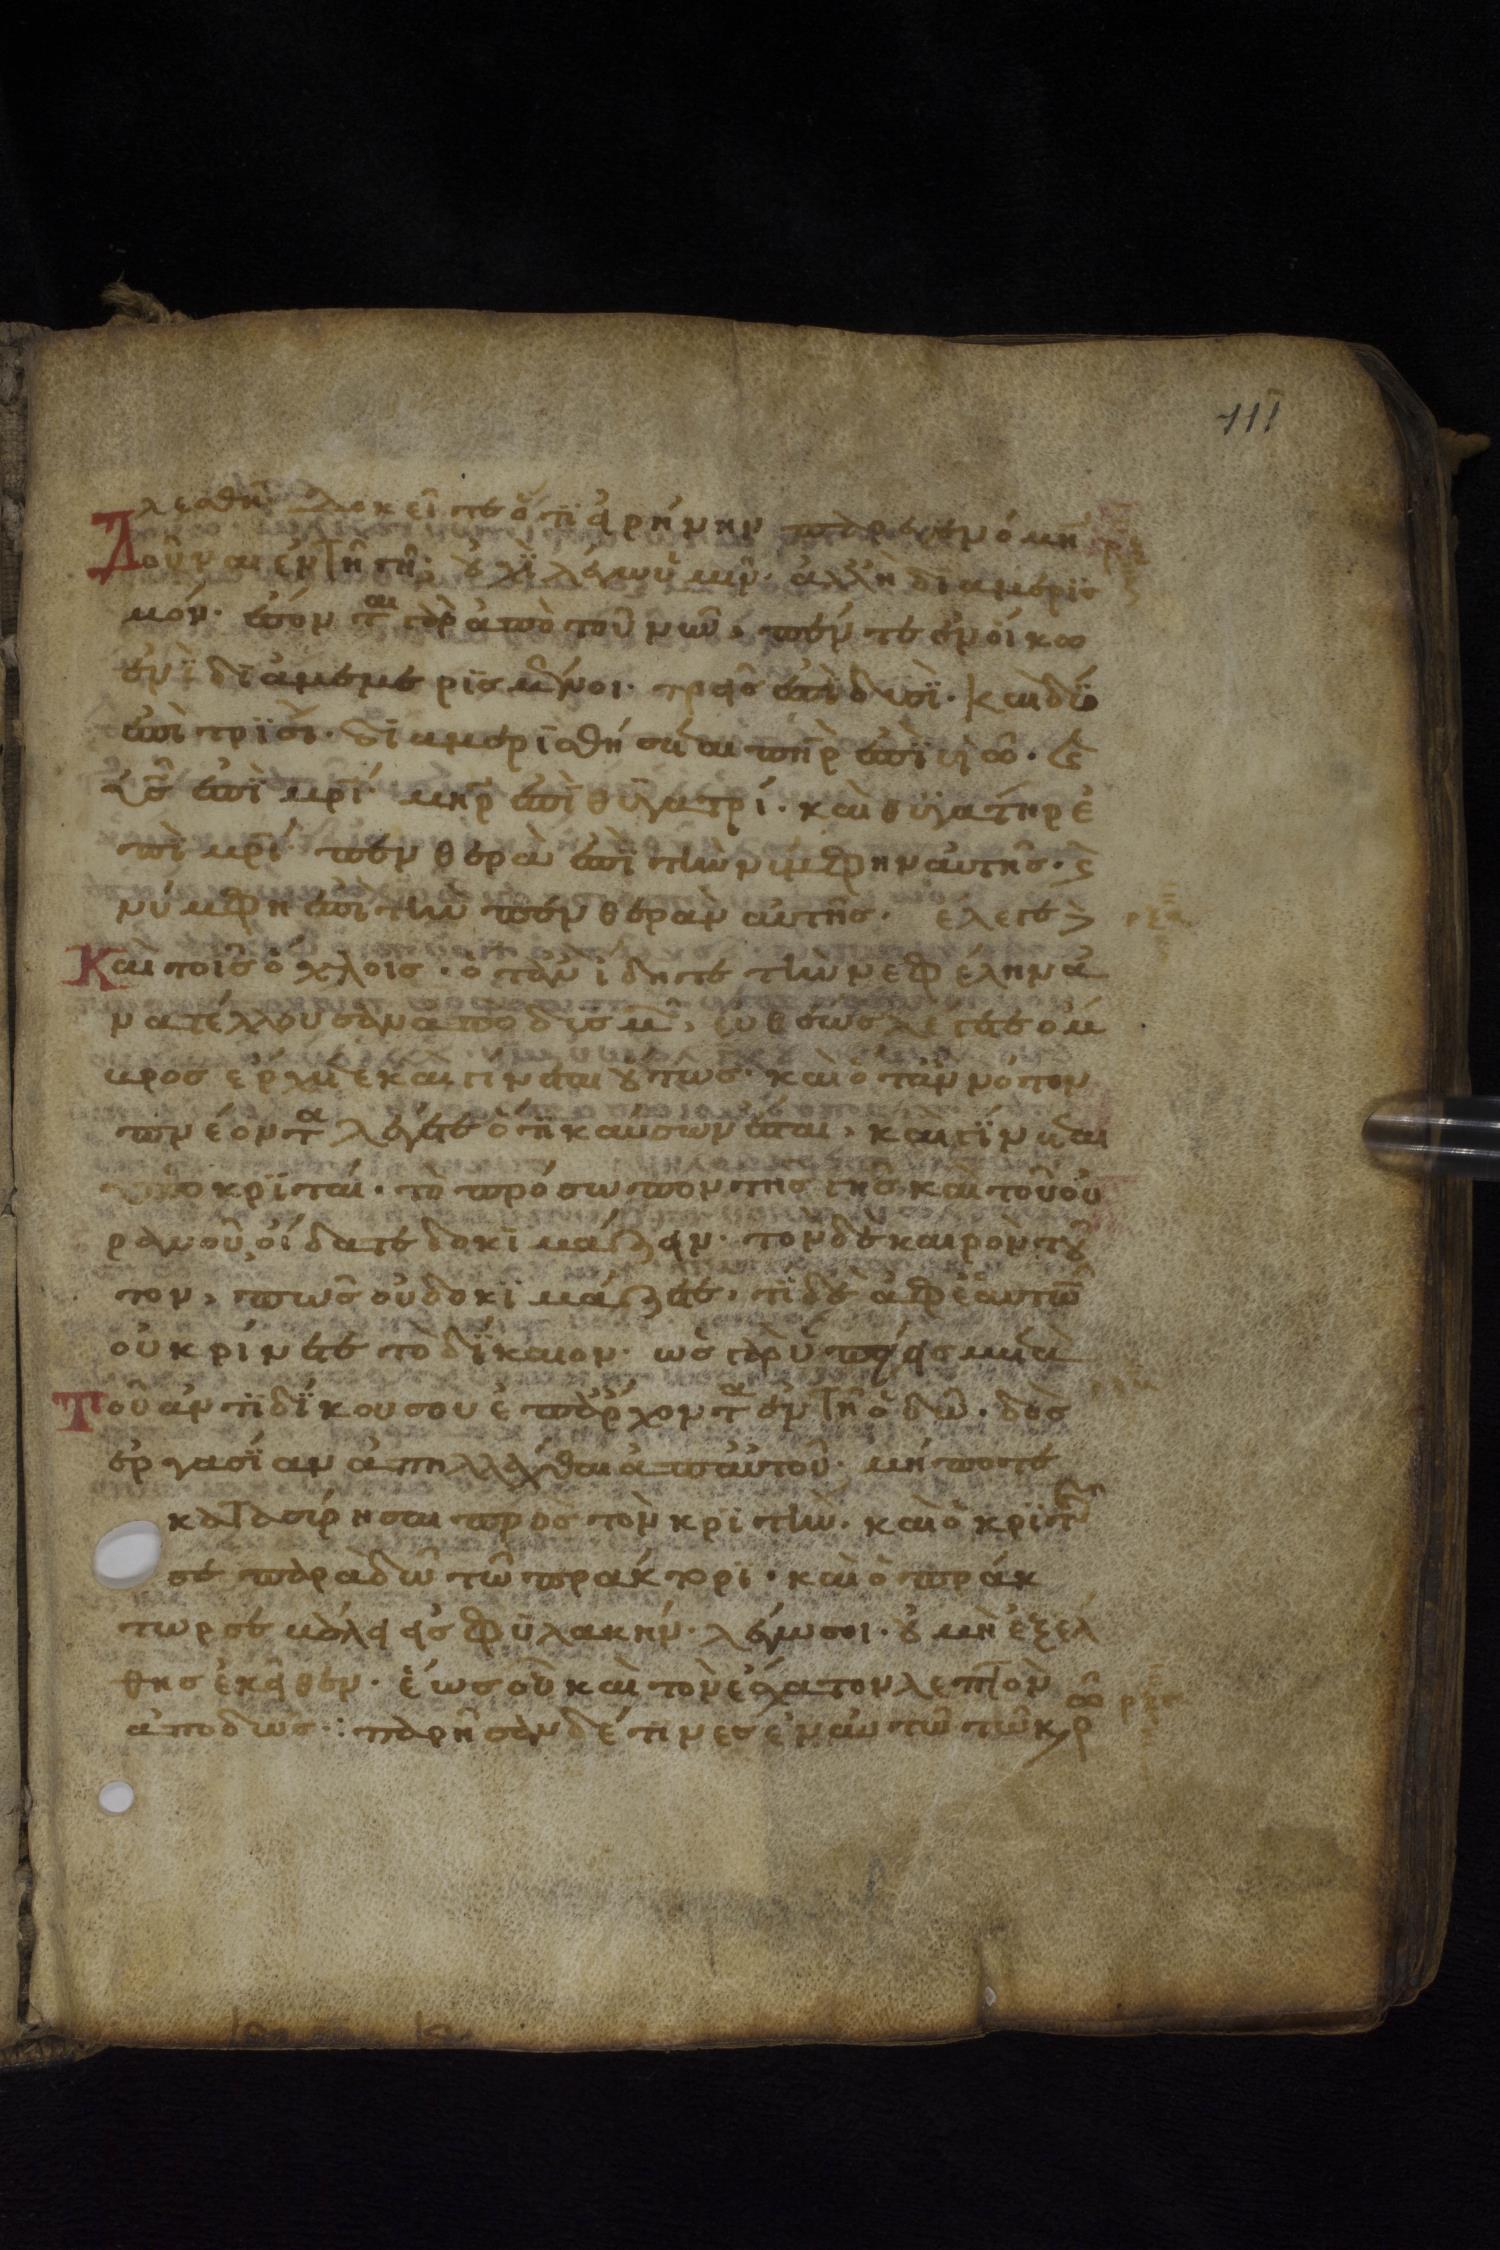 111
λεσθῆ δοκεῖτε ὅτι εἰρήνην παρεγενόμην
Δοῦναι ἐν τῇ γῇ; οὐχὶ λέγω ὑμῖν· ἀλλ' ἢ διαμερισ
μόν· ἔσονται γὰρ ἀπὸ τοῦ νῦν, πέντε ἐν οἴκω
ἑνὶ διαμεμερισμένοι· τρεῖς ἐπὶ δυσὶ· καὶ δύο
ἐπὶ τρισὶ· διαμερισθήσεται πηρ ἐπὶ υἱῶ· καὶ
υἱὸς ἐπὶ πρι· μηρ ἐπὶ θυγατρί· καὶ θυγάτηρ ἐ
πὶ μρι· πενθερὰ ἐπὶ τὴν νύμφην αὐτῆς· καὶ
νύμφη ἐπὶ τὴν πενθερὰν αὐτῆς· ἔλεγε
Καὶ τοῖς ὄχλοις· ὅταν ἴδητε τὴν νεφέλην ἀ
νατέλλουσαν ἀπὸ δυσμῶν, εὐθέως λέγετε ὄμ
βρος ἔρχεται καὶ γίνεται οὕτως· καὶ ὅταν νότον
πνέοντα λέγετε ὅτι καύσων ἔσται, καὶ γίνεται
ὑποκριταί· τὸ πρόσωπον τῆς γῆς καὶ τοῦ οὐ
ρανοῦ οἴδατε δοκιμάζειν· τὸν δὲ καιρὸν τοῦ
τον, πῶς οὐ δοκιμάζετε, τί δὲ ἀφ' ἑαυτῶν
οὐ κρίνετε τὸ δίκαιον· ὡς γὰρ ὑπάγεις μετὰ
Τοῦ ἀντιδίκου σου ἐπ' ἄρχοντα ἐν τῇ ὁδῶ· δὸς
ἐργασίαν ἀπηλλάχθαι ἀπ' αὐτοῦ· μήποτε
κατασύρη σε πρὸς τὸν κριτὴν· καὶ ὁ κριτής
σε παραδῶ τῶ πράκτορι· καὶ ὁ πράκ
τωρ σε βάλη εἰς φυλακήν· λέγω σοι· οὐ μὴ ἐξέλ
θης ἐκεῖθεν· ἕως οὗ καὶ τὸν ἔσχατον λεπτὸν
ἀποδῶς· παρῆσαν δέ τινες ἐν αὐτῶ τῶ καιρῶ